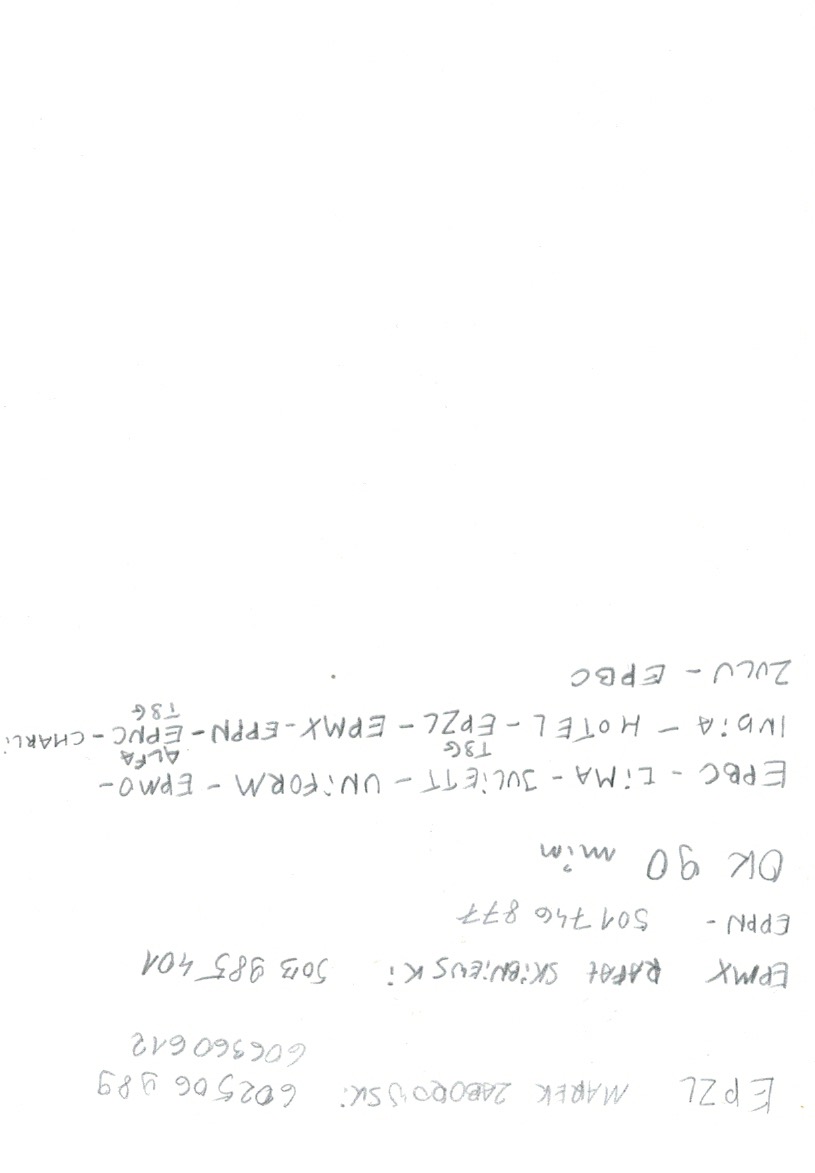 EPZL MAREK ZABOROWSKi 602506 989
606360612
EPMX RAFAŁ SKiBNiEWSKi 503 985 401
EPPN - 501 746 877
OK 90 min
EPBC - LiMA - JULiETT - UNiFORM - EPMO -
TSG ALFA
INDiA - HOTEL - EPZL - EPMX - EPPN - EPNC - CHARLi
TSG
ZULU - EPBC